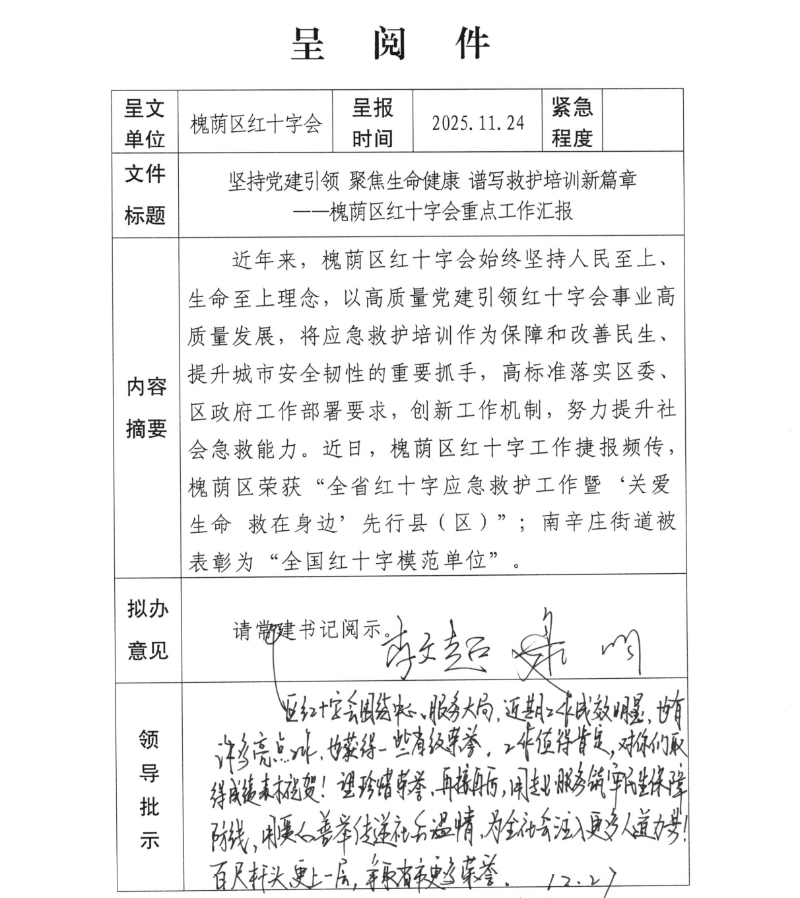 呈 阅 件
呈文单位 槐荫区红十字会 呈报时间 2025.11.24 紧急程度
文件标题
坚持党建引领 聚焦生命健康 谱写救护培训新篇章
——槐荫区红十字会重点工作汇报
内容摘要
近年来，槐荫区红十字会始终坚持人民至上、
生命至上理念，以高质量党建引领红十字会事业高
质量发展，将应急救护培训作为保障和改善民生、
提升城市安全韧性的重要抓手，高标准落实区委、
区政府工作部署要求，创新工作机制，努力提升社
会急救能力。近日，槐荫区红十字工作捷报频传，
槐荫区荣获“全省红十字应急救护工作暨‘关爱
生命 救在身边’先行县（区）”；南辛庄街道被
表彰为“全国红十字模范单位”。
拟办意见
请常建书记阅示。
领导批示
区红十字会围绕中心、服务大局，近期工作成效明显，也有
许多亮点，也获得一些省级荣誉，工作值得肯定，对你们取
得成绩表示祝贺！望珍惜荣誉，再接再厉，用专业服务筑牢民生保障
防线，用爱心善举传递社会温情，为全社会注入更多人道力量！
百尺竿头更上一层，争取省市更多荣誉。 12.27